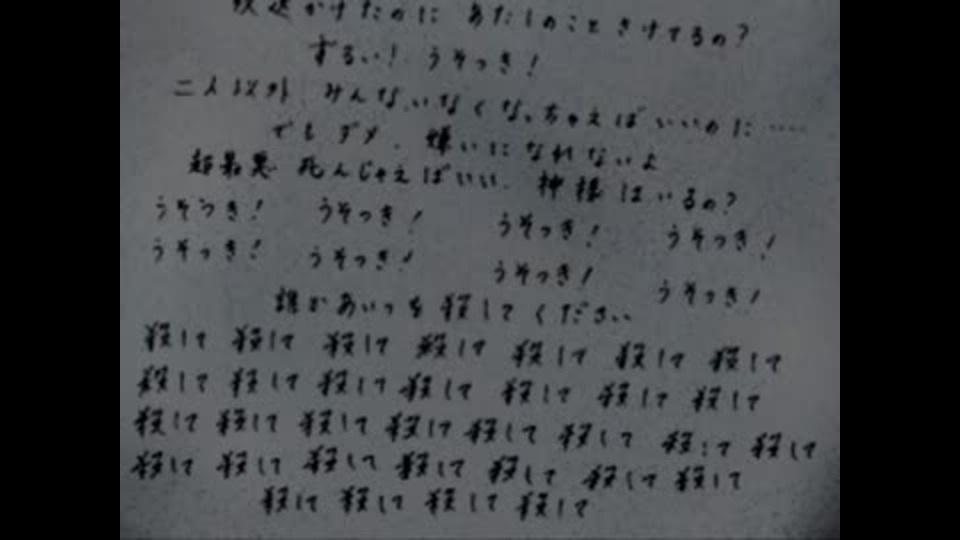 かけたのに あたしのこと さけてるの?
ずるい! うそつき!
二人以外 みんないなくなっちゃえば いいのに……
でもダメ. 嫌いになれないよ
超最悪 死んじゃえばいい. 神様はいるの?
うそつき! うそつき! うそつき! うそつき!
うそつき! うそつき! うそつき! うそつき!
誰かあいつを殺してください
殺して 殺して 殺して 殺して 殺して 殺して 殺して
殺して 殺して 殺して 殺して 殺して 殺して 殺して
殺して 殺して 殺して 殺して 殺して 殺して 殺して 殺して
殺して 殺して 殺して 殺して 殺して 殺して 殺して
殺して 殺して 殺して 殺して